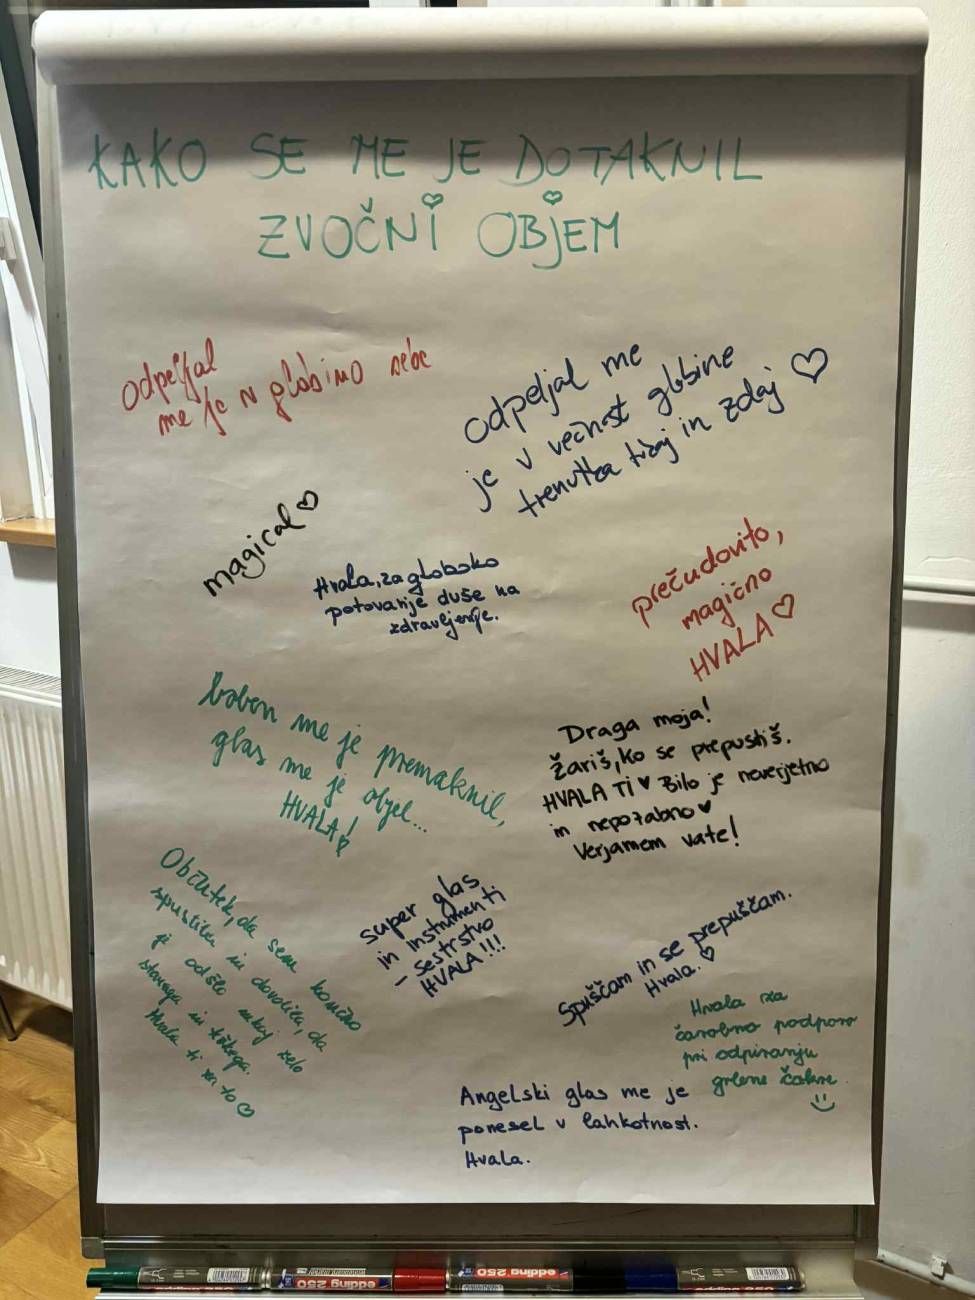 KAKO SE ME JE DOTAKNIL
ZVOČNI OBJEM
odpeljal
me je v globino sebe
odpeljal me
je v večnost globine
trenutka tukaj in zdaj
magical
Hvala, za globoko
potovanje duše na
zdravljenje.
prečudovito,
magično
HVALA
boben me je premaknil,
glas me je objel...
HVALA!
Draga moja!
Žariš, ko se prepustiš.
HVALA TI Bilo je neverjetno
in nepozabno
Verjamem vate!
Občutek, da sem končno
spustila in dovolila, da
je odšlo nekaj zelo
starega in težkega.
Hvala ti za to
super glas
in instrumenti
- sestrstvo
HVALA!!!
Spuščam in se prepuščam.
Hvala.
Hvala za
čarobno podporo
pri odpiranju
grlene čakre
Angelski glas me je
ponesel v lahkotnost.
Hvala.
edding 250
edding 250